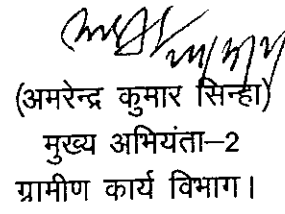 (अमरेन्द्र कुमार सिन्हा)
मुख्य अभियंता–2
ग्रामीण कार्य विभाग।